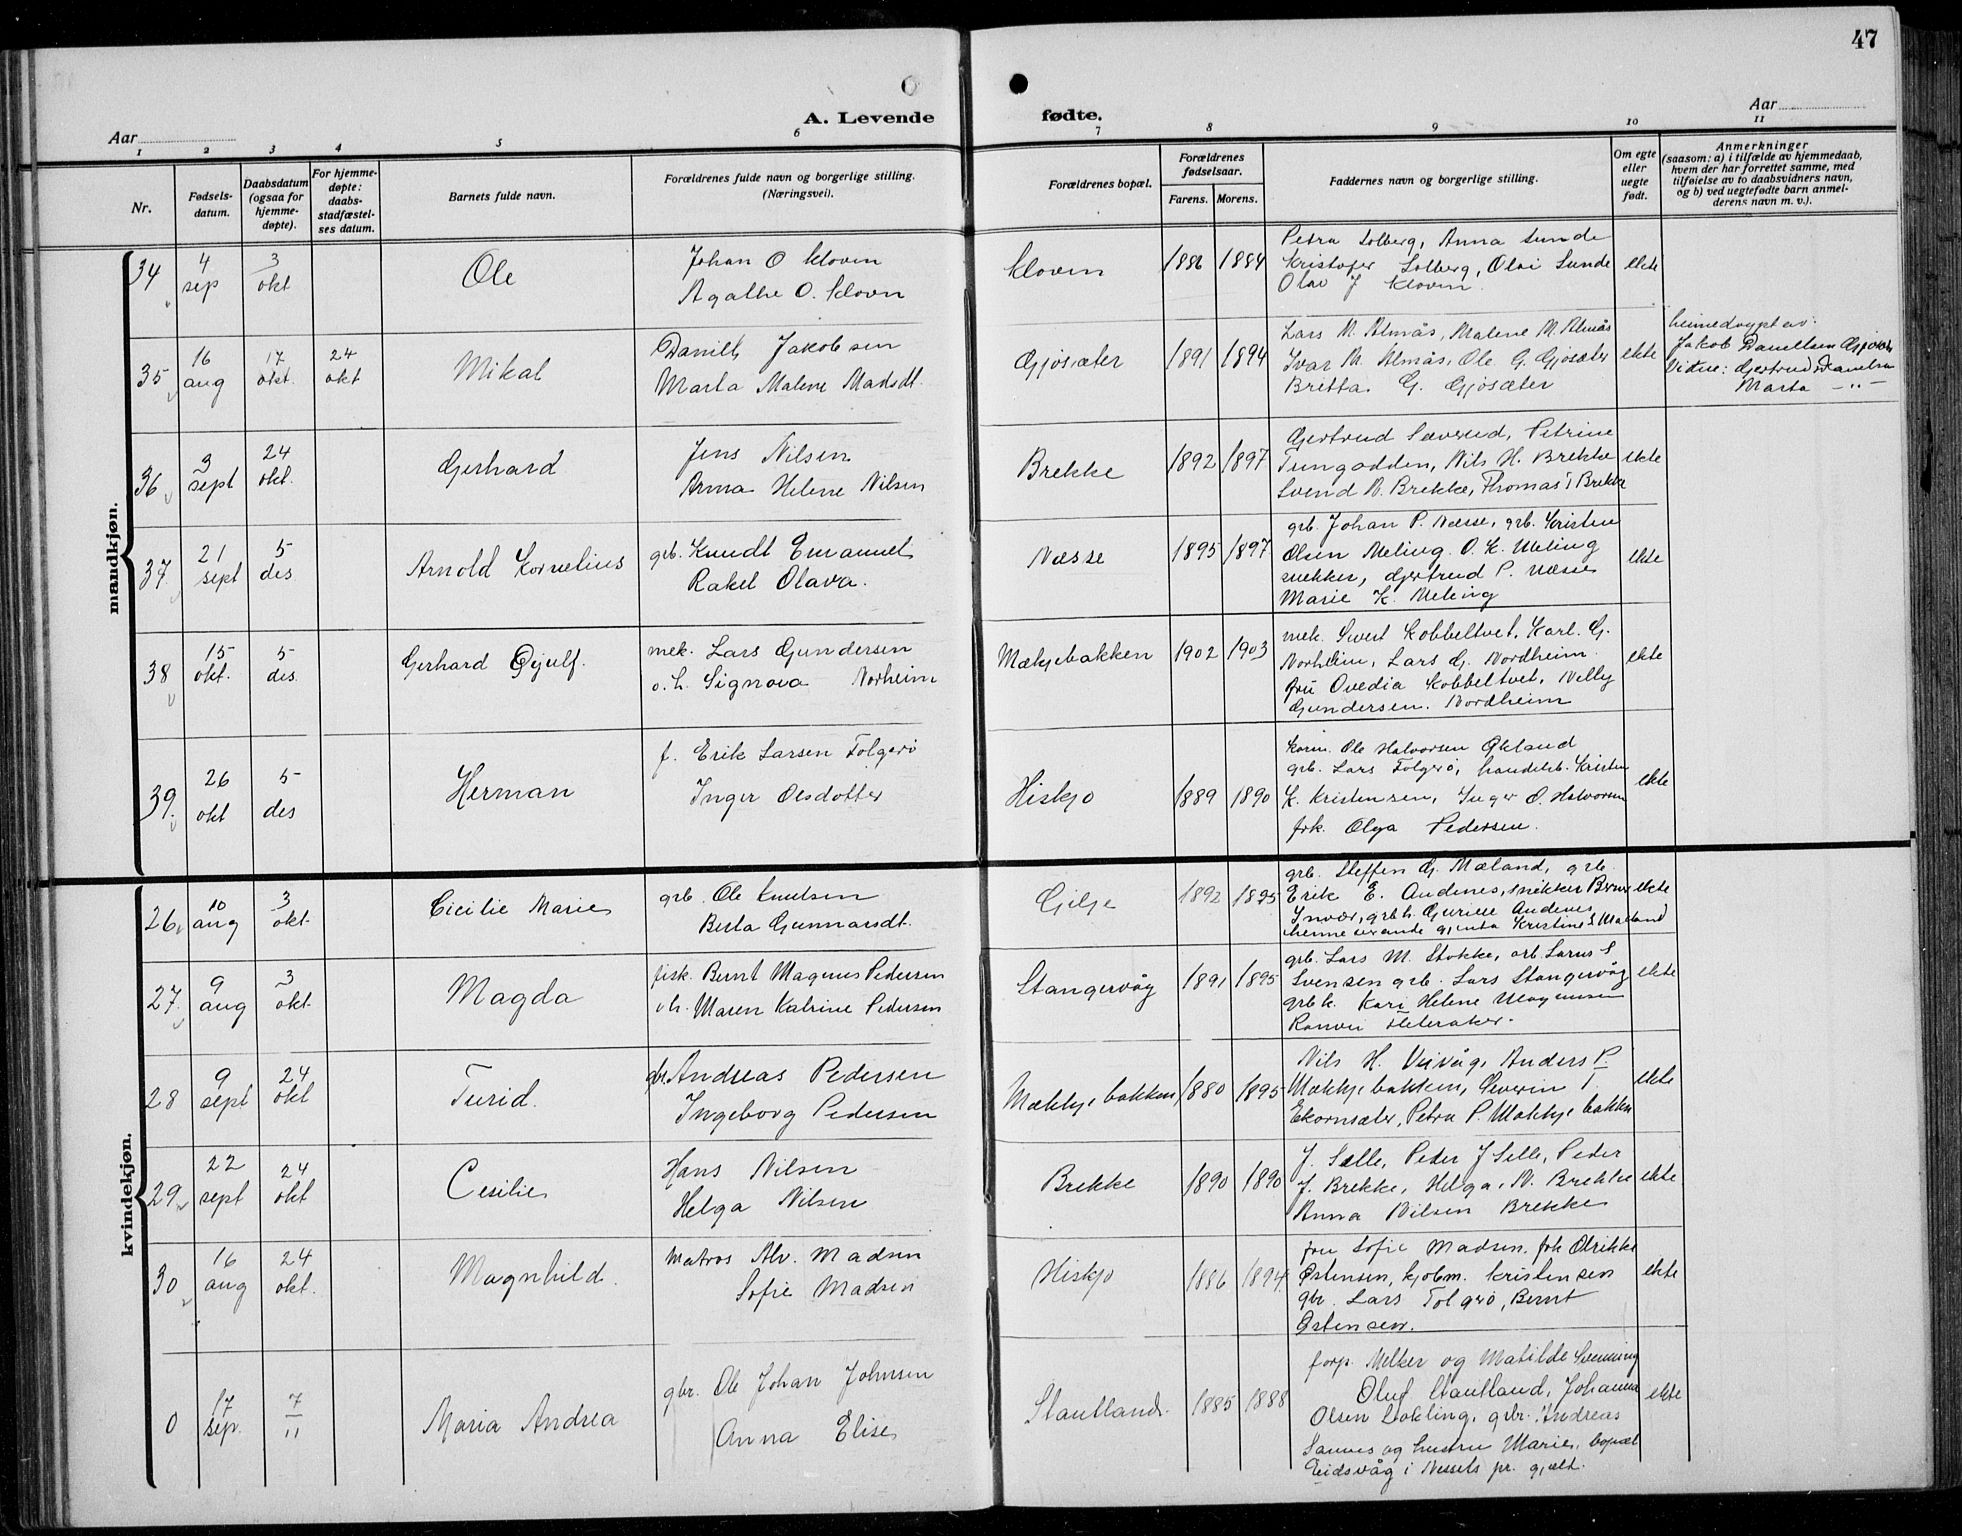 47
Aar
A. Levende
fødte.
Aar
1 2 3 4 5 6 7 8 9 10 11
Nr.
Fødsels-
datum.
Daabsdatum
(ogsaa for
hjemme-
døpte).
For hjemme-
døpte:
daabs-
stadfæstel-
ses datum.
Barnets fulde navn.
Forældrenes fulde navn og borgerlige stilling.
(Næringsvei).
Forældrenes bopæl.
Forældrenes
fødselsaar.
Farens. Morens.
Faddernes navn og borgerlige stilling.
Om egte
eller
uegte
født.
Anmerkninger
(saasom: a) i tilfælde av hjemmedaab,
hvem der har forrettet samme, med
tilføielse av to daabsvidners navn,
og b) ved uegtefødte barn anmel-
derens navn m. v.).
mandkjøn.
34
4
sep
3
okt
Ole
Johan O Kloven
Agathe O. Kloven
Kloven
1886 1884
Petra Solberg, Anna Sunde
Kristofer Solberg, Olai Sunde
Olav J Kloven
ekte
35
16
aug
17
okt.
24
okt
Mikal
Daniel Jakobsen
Marta Malene Madsdt.
Gjøsæter
1891 1894
Lars M. Almås, Malene M. Almås
Ivar M. Almås, Ole G. Gjøsæter
Britta G. Gjøsæter
ekte
heimedøypt av:
Jakob Danielsen Gjøsæter
Vidne: Gjertrud Danielsen
Marta — " —
36
3
sept
24
okt.
Gerhard
Jens Nilsen
Anna Helene Nilsen
Brekke
1892 1897
Gjertrud Sæverud, Petrine
Tungodden, Nils H. Brekke
Svend N. Brekke, Thomas Brekke
ekte
37
21
sept
5
des
Arnold Kornelius
grb. Knudt Emanuel
Rakel Olava.
Næsse
1895 1897
grb. Johan P. Næsse, grb. Kristen
Olsen Meling. O. K. Meling
snekker, Gjertrud P. Næsse
Marie K. Meling
ekte
38
15
okt.
5
des.
Gerhard Øyulf.
mek. Lars Gundersen
o. h. Signora Norheim
Mækjebakken
1902 1903
mek. Sivert Kobbeltvet, Karl. G.
Norheim, Lars G. Nordheim.
fru Ovedia Kobbeltvet, Nelly
Gundersen. Nordheim
ekte
39.
26
okt
5
des
Herman
f. Erik Larsen Folgerø
Inger Olsdotter
Hiskjo
1889 1890
Ole Halvorsen Økland
grb. Lars Folgerø, handelsb. Kristen
K. Kristensen, Inger O. Halvorsen
frk. Olga Pedersen.
ekte
kvindekjøn.
26
10
aug
3
okt.
Cicilie Marie
grb. Ole Knutsen
Berta Gunnarsdt.
Gilje
1892 1895
grb. Steffen G. Mæland, grb.
Erik E. Andenes, snikker
Innvær, grb h. Gurine Andenes
heimeverande gjenta Kristine S Mæland
ekte
27.
9
aug
3
okt.
Magda
fisk. Bernt Magnus Pedersen
o h. Maren Katrine Pedersen
Stangervåg
1891 1895
grb. Lars M. Stokke, arb. Lars S
Svensen grb. Lars Stangervåg
grb h. Kari Helene Magnusen
ekte
28
9
sept
24
okt
Turid.
gbr. Andreas Pedersen
Ingeborg Pedersen
Mækkjebakken
1880 1895
Nils H. Vivåg, Anders P.
Mækkjebakken, Severin T.
Ekornsæter, Petra P. Mækkjebakken
ekte
29
22
sept
24
okt
Cesilie
Hans Nilsen
Helga Nilsen
Brekke
1890 1890
J. Selle, Peder J Selle, Peder
J. Brekke, Helga N. Brekke
Anna Nilsen Brekke
ekte
30
16
aug
24
okt.
Magnhild.
Matros Alv. Madsen
Sofie Madsen
Hiskjo
1886 1894
fru Sofie Madsen. frk Olrikke
Østensen, kjøbm. Kristensen
gbr. Lars Folgerø, Bernt
Østensen.
ekte
0
17
sep.
7
11
Maria Andrea
gbr. Ole Johan Johnsen
Anna Elise
Stautland.
1885 1888
forp. Melker og Matilde Svenning
Oluf Stautland, Johanna
Olsen Løkling, gbr. Andreas
Sannes og hustru Marie, bopæl
Eidsvåg i Nessets pr. gjæld.
ekte